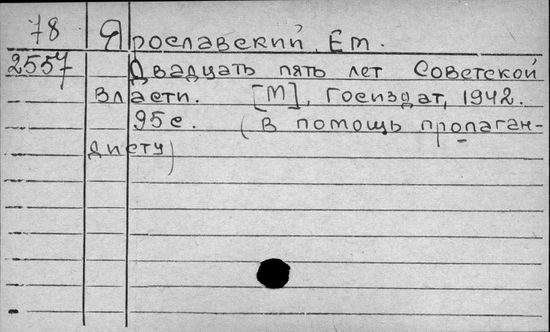 78 Ярославский, Ем.
2557 Двадцать пять лет Советской
власти. [М], Госиздат, 1942.
95с. (В помощь пропаган-
дисту)